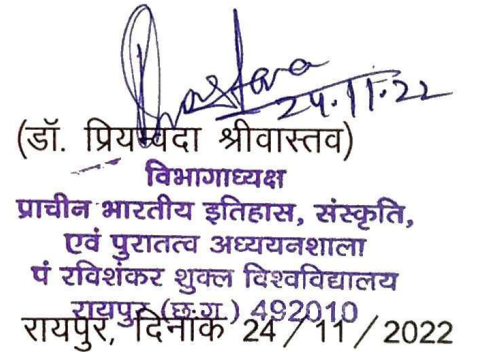 24.11.22
(डॉ. प्रियम्वदा श्रीवास्तव)
विभागाध्यक्ष
प्राचीन भारतीय इतिहास, संस्कृति,
एवं पुरातत्व अध्ययनशाला
पं रविशंकर शुक्ल विश्वविद्यालय
रायपुर (छ.ग.) 492010
रायपुर, दिनांक 24 / 11 / 2022